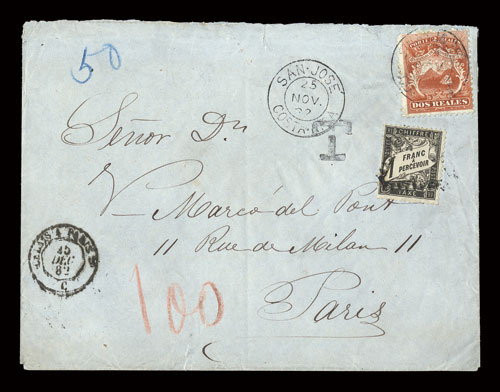 50
SAN-JOSÉ
25
NOV.
82
COSTA
DOS REALES
T
CHIFFRE
1 FRANC
À
PERCEVOIR
TAXE
Señor Dn
V. Marcó del Pont
11 Rue de Milan 11
Paris
CALAIS A PARIS
DEC
82
C
100